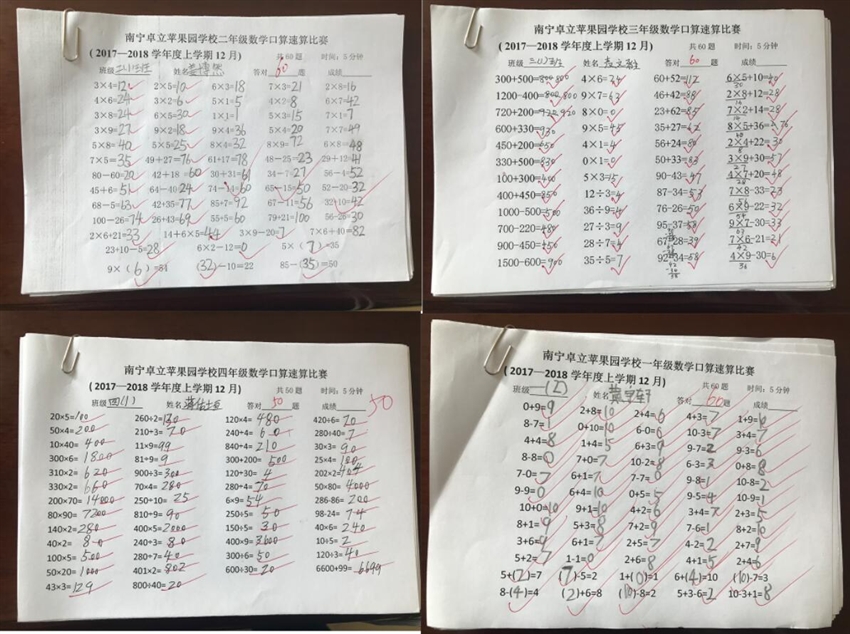 南宁卓立苹果园学校二年级数学口算速算比赛
(2017—2018 学年度上学期 12 月) 共 60 题 时间：5 分钟
班级 姓名 答对 60 题 成绩
3×4=12 2×5=10 6×3=18 7×3=21 2×8=16
4×6=24 3×2=6 5×1=5 4×2=8 6×7=42
3×8=24 6×5=30 1×1=1 5×3=15 7×1=7
3×9=27 9×2=18 9×4=36 5×4=20 7×7=49
5×8=40 5×5=25 8×4=32 8×9=72 6×8=48
7×5=35 49+27=76 61+17=78 48－25=23 29+12=41
80－60=20 42+18=60 30+31=61 34－7=27 56－4=52
45+6=51 64－40=24 74－14=60 65－15=50 52－20=32
68－5=63 42+35=77 85+7=92 67－11=56 32+10=42
100－26=74 26+43=69 55+5=60 79+21=100 56－26=30
2×6+21=33 14+6×5=44 3×9－20=7 7×6+40=82
23+10－5=28 6×2－12=0 5×(7)=35
9×(6)=54 (32)－10=22 85－(35)=50
南宁卓立苹果园学校三年级数学口算速算比赛
(2017—2018 学年度上学期 12 月) 共 60 题 时间：5 分钟
班级 姓名 答对 60 题 成绩
300+500=800 4×6=24 60+52=112 6×5+10=40
1200-400=800 9×7=63 46+42=88 2×8+12=28
720+200=920 8×0=0 23+62=85 7×2+14=28
600+330=930 9×5=45 35+27=62 8×5+36=76
450+200=650 4×1=4 56+24=80 2×4+22=30
330+500=830 0×1=0 50+33=83 3×9+30=57
100+300=400 5×3=15 90-43=47 4×7+20=48
400+450=850 12÷3=4 87-34=53 7×8-33=23
1000-500=500 36÷9=4 76-26=50 6×9-22=32
700-220=480 27÷3=9 95-37=58 9×7-30=33
900-450=450 28÷7=4 67-28=39 7×6-21=21
1500-600=900 35÷5=7 92-34=58 4×9-30=6
南宁卓立苹果园学校四年级数学口算速算比赛
(2017—2018 学年度上学期 12 月) 共 50 题 时间：5 分钟
班级 四(1) 姓名 答对 50 题 成绩 50
20×5=100 260÷2=130 120×4=480 420÷6=70
50×4=200 210÷3=70 240÷4=60 280÷40=7
10×40=400 11×9=99 840÷4=210 30×3=90
300×6=1800 81÷9=9 300+200=500 25×4=100
310×2=620 900÷3=300 120÷30=4 202×2=404
330×2=660 70×4=280 280÷4=70 50×80=4000
200×70=14000 250÷10=25 6×9=54 286-86=200
80×90=7200 810÷9=90 250÷5=50 98-24=74
140×2=280 400×5=2000 150÷5=30 40×6=240
40×2=80 240÷3=80 400×9=3600 10÷5=2
100×5=500 280÷7=40 300÷6=50 120÷3=40
50×20=1000 401×2=802 600÷30=20 6600+99=6699
43×3=129 800÷40=20
南宁卓立苹果园学校一年级数学口算速算比赛
(2017—2018 学年度上学期 12 月) 共 60 题 时间：5 分钟
班级 姓名 黄宇轩 答对 60 题 成绩
0+9=9 2+8=10 2+4=6 4+3=7 1+9=10
8-7=1 0+10=10 6-0=6 10-3=7 3+4=7
4+4=8 1+4=5 6+3=9 9-7=2 9-3=6
8-8=0 7+0=7 10-2=8 6-3=3 0+8=8
7-0=7 6+1=7 7-7=0 9-8=1 10-8=2
9-9=0 6+4=10 0+5=5 9-5=4 10-9=1
10+0=10 9+1=10 4+2=6 3+4=7 2+3=5
8+1=9 5+3=8 7+2=9 7-6=1 8+2=10
3+6=9 6+1=7 2+5=7 4-2=2 2+7=9
5+2=7 1-1=0 2+6=8 4+1=5 2+4=6
5+(2)=7 (7)-5=2 1+(0)=1 6+(4)=10 (10)-7=3
8-(4)=4 (2)+6=8 (10)-8=2 5+3-6=2 10-3+1=8